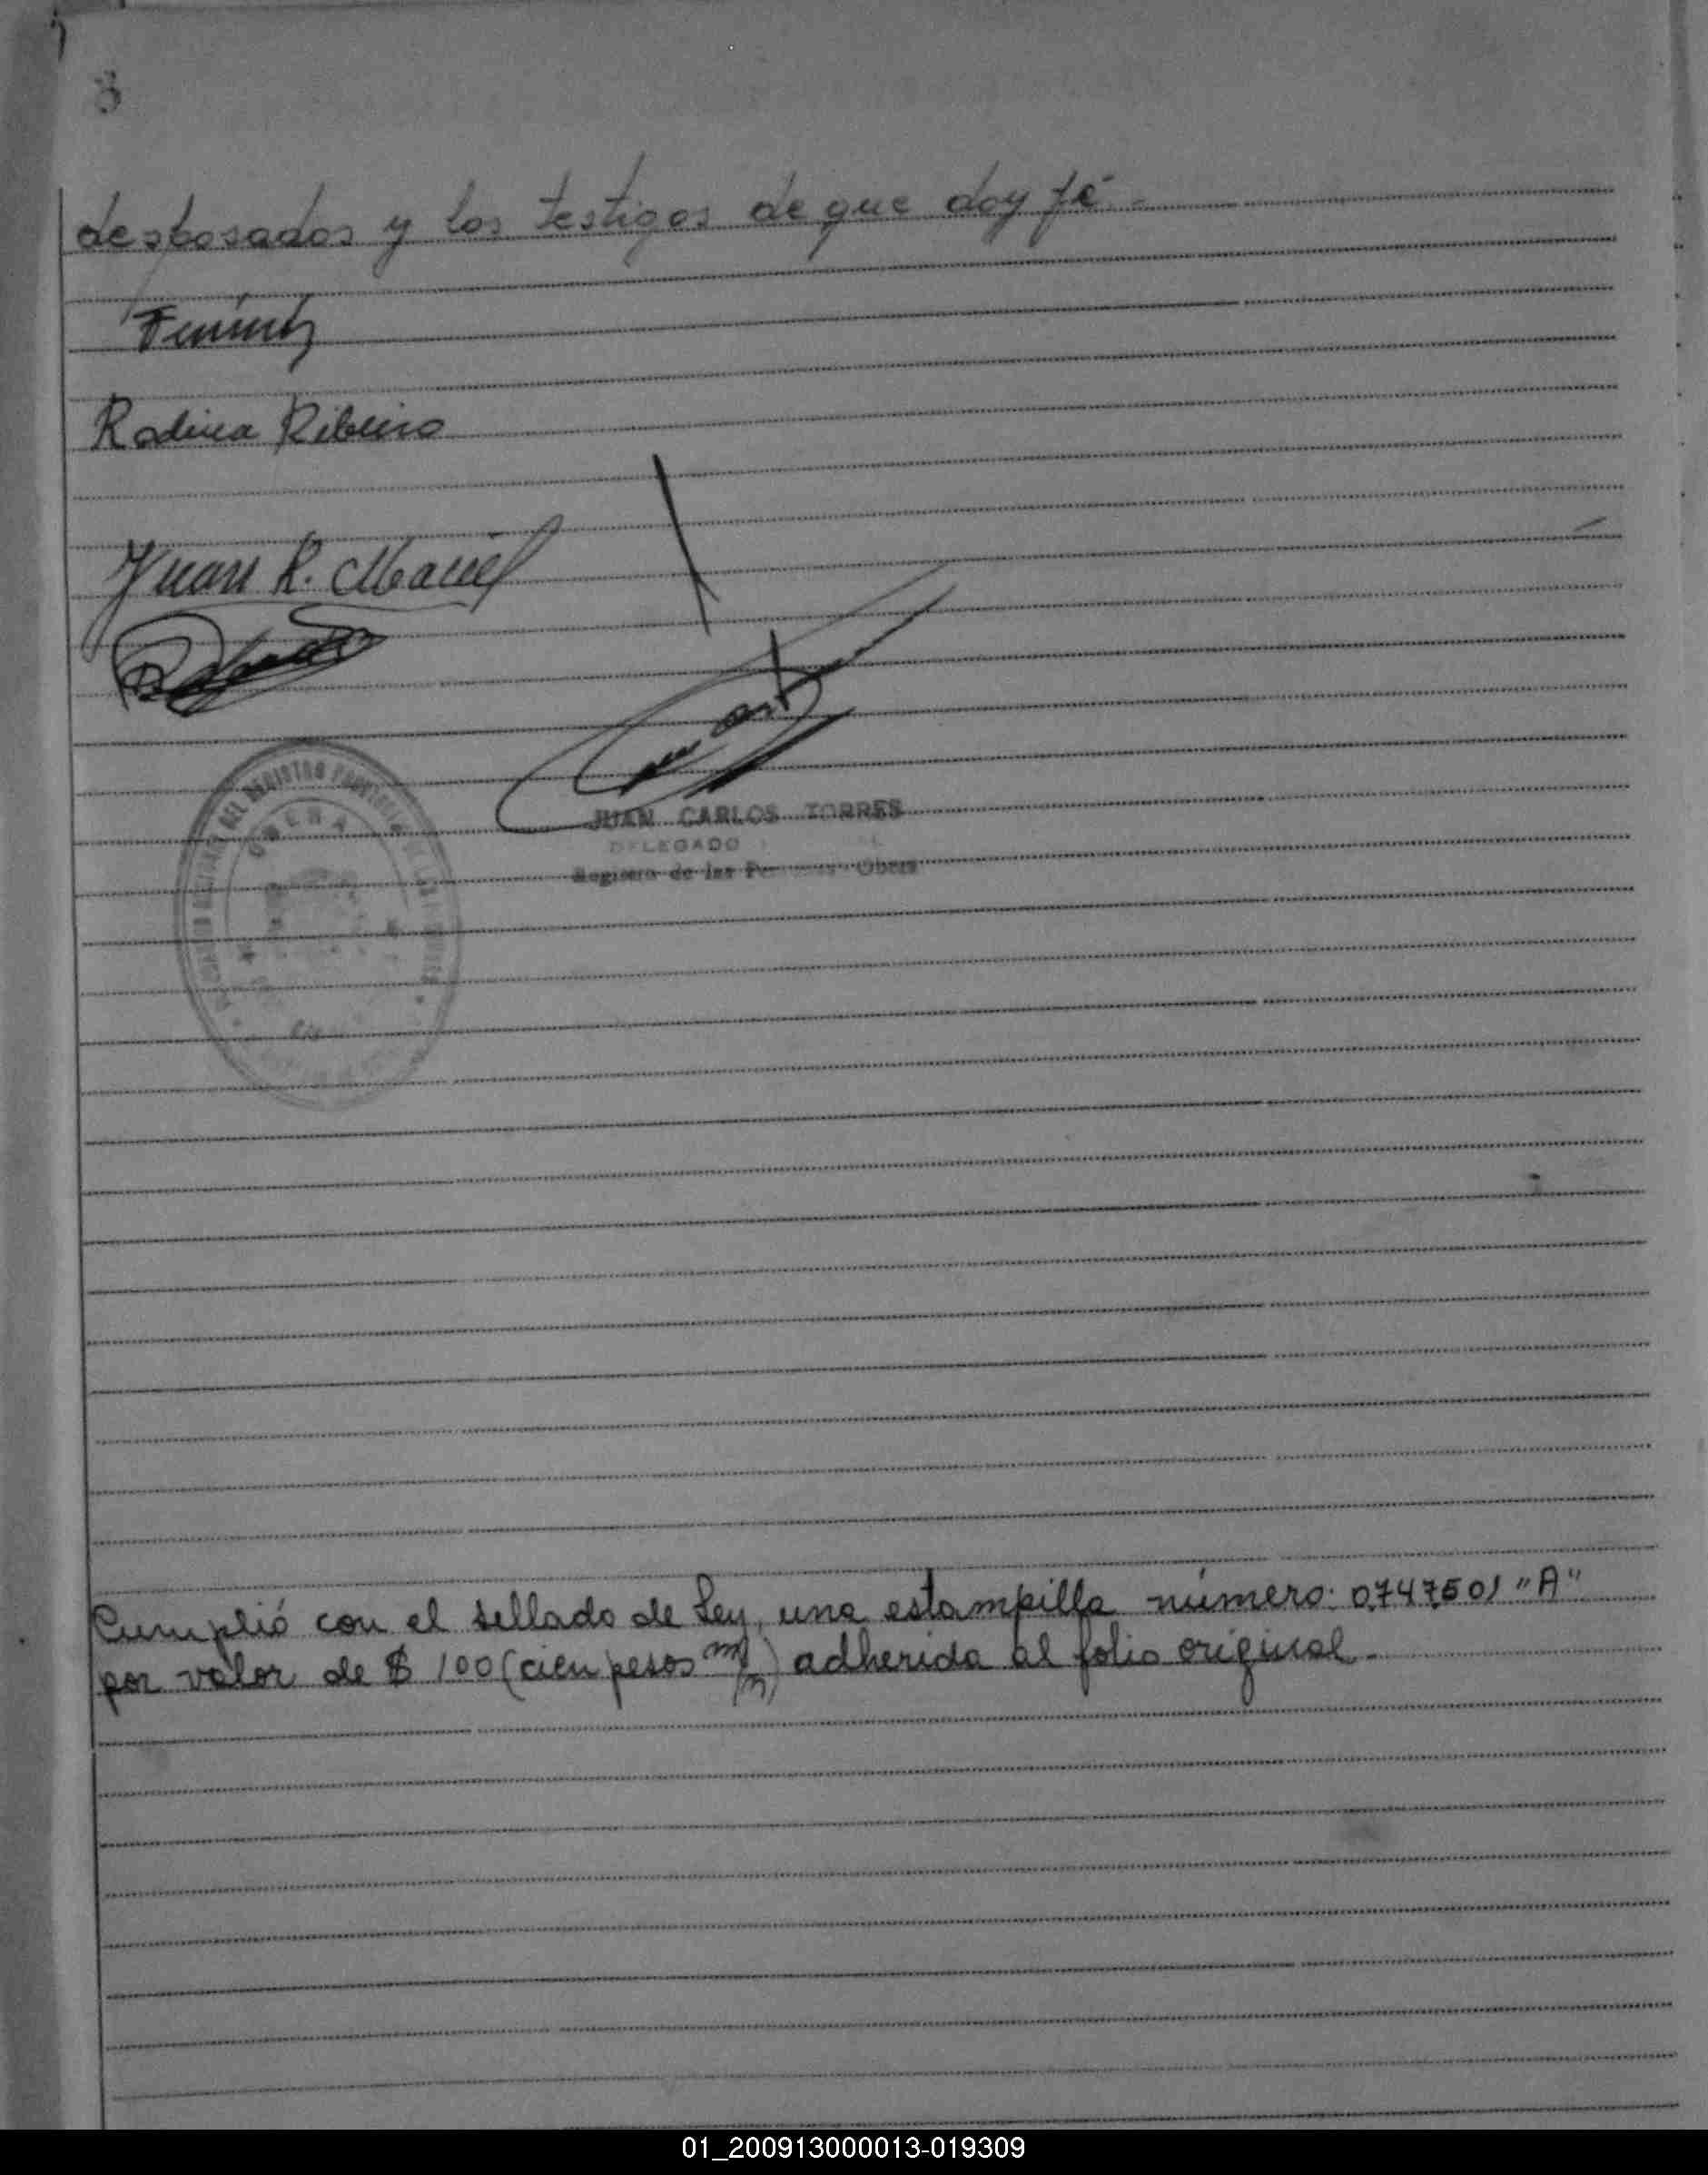 3
desposados y los testigos de que doy fé.-
Rodica Ribeiro
Juan R. Maciel
DEL REGISTRO
OBERA
JUAN CARLOS TORRES
DELEGADO
Registro de las Obera
Cumplió con el sellado de Ley, una estampilla número: 0747501 "A"
por valor de $ 100 (cien pesos m/n) adherida al folio original.-
01_200913000013-019309